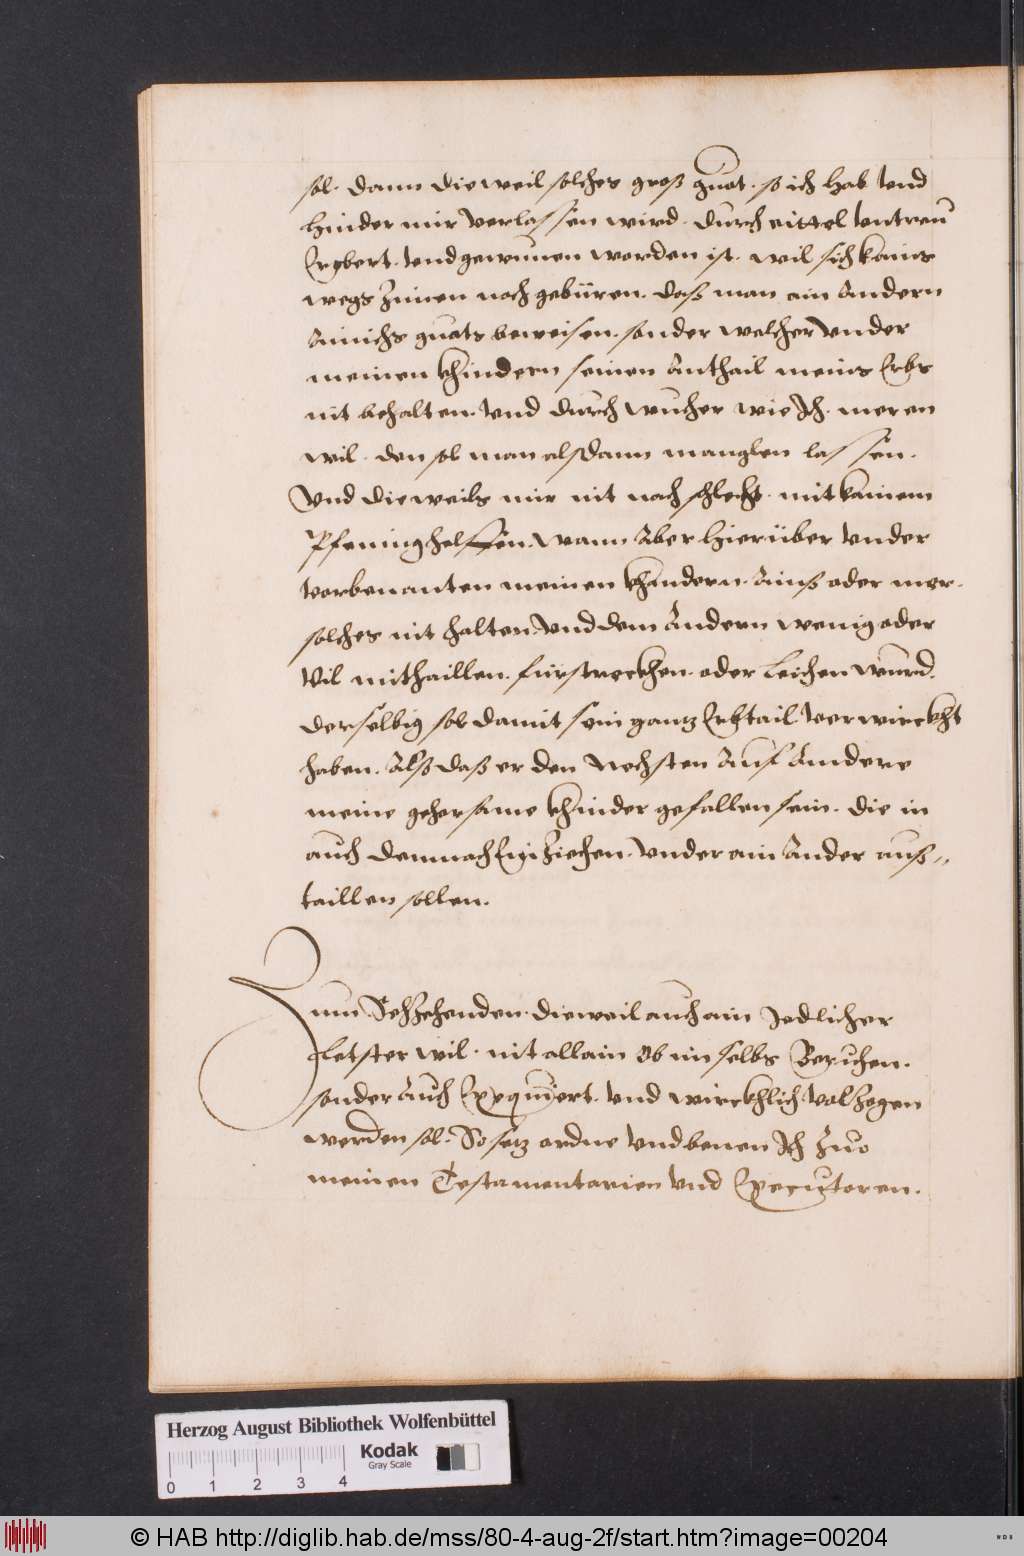 sol. dann dieweil solches groß guot. so ich hab vnd
hinder mir verlassen wird. durch eittel vntreu
Erobert. vnd gewunnen worden ist. wil sich kains
wegs zimen noch gebüren. daß man ain Andern
Ainichs guots beweisen. sonder welcher vnder
meinen khindern seinen Anthail meins Erbs
nit behalten. vnd durch wucher wie Ich. meren
wil. den sol man alsdann manglen lassen.
Vnd dieweils mir nit noch schlecht. mit kainem
Pfening helffen. Wann Aber hierüber vnder
vorbenanten meinen khindern. Ains oder mer.
solches nit halten. Vnd dem Andern wenig oder
Vil mithaillen. fürstreckhen. oder leichen wurd.
derselbig sol damit sein gantz Erbtail verwirckht
haben. Alß daß er den Nechsten Auf Andere
meine gehorsame khinder gefallen sein. die in
auch demnach Einziechen. Vnder ain Ander auß-
taillen sollen.
Zum Sechzehenden. dieweil auch ain Jedlicher
letster wil. nit allain Ob im selbs Beruchen.
sonder Auch Exequiert. vnd wirckhlich volzogen
werden sol. So setz ordne vnd benen Ich zuo
meinen Testamentarien vnd Executoren.
Herzog August Bibliothek Wolfenbüttel
Kodak
Gray Scale
0 1 2 3 4
© HAB http://diglib.hab.de/mss/80-4-aug-2f/start.htm?image=00204